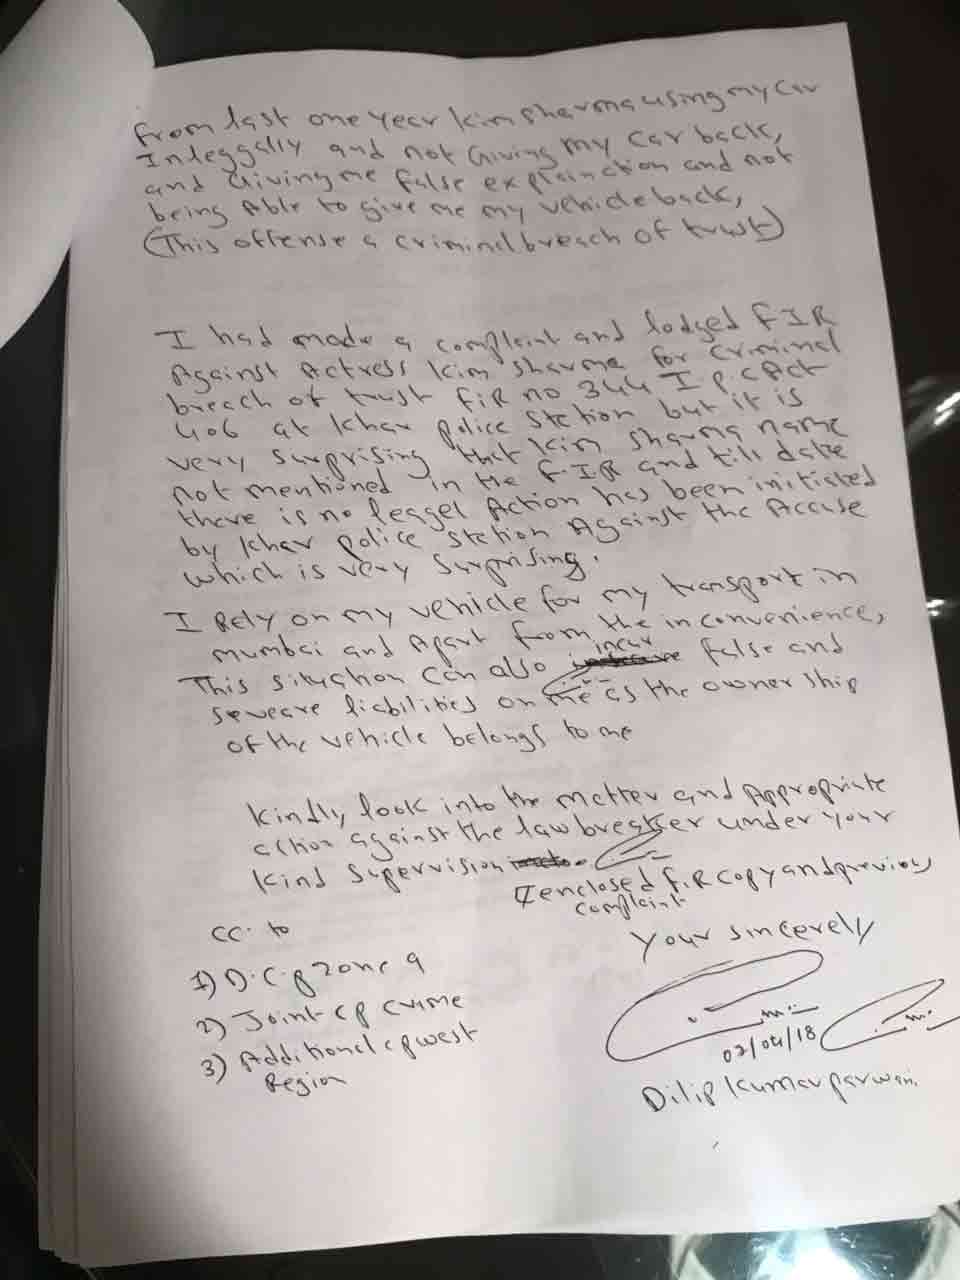 from last one year kim sharma using my car
Inleggally and not Giving my car back,
and Giving me false explainction and not
being Able to give me my vehicle back,
(This offense a criminal breach of trust)
I had made a complaint and lodged FIR
Against Actress kim sharma for criminal
breach of trust FiR no 344 I P.C Act
406 at khar police station but it is
very surprising that kim sharma name
not mentioned in the F.IR and till date
there is no leggel Action has been initiated
by khar police station Against the Accuse
which is very surprising.
I Rely on my vehicle for my transport in
mumbai and Apart from the inconvenience,
This situation can also incur false and
seveare liabilities on me as the ownership
of the vehicle belongs to me
kindly look into the matter and Appropriate
action against the law breaker under your
kind supervision
I enclosed F.iR copy and previous
complaint
Your sincerely
cc. to
1) D.C.P zone 9
2) Joint cp crime
3) Additional cp west
Region
02/04/18
Dilip kumar parwani